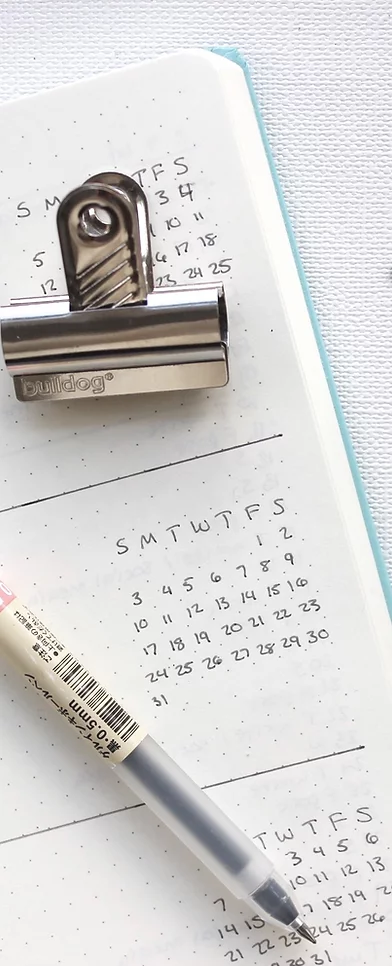 S M T F S
3 4
5 10 11
12 17 18
23 24 25
bulldog®
S M T W T F S
1 2
3 4 5 6 7 8 9
10 11 12 13 14 15 16
17 18 19 20 21 22 23
24 25 26 27 28 29 30
31
黒・0.5mm
ゲルインキボールペン
T W T F S
3 4 5 6
7 10 11 12 13
14 15 17 18 19 20
21 22 23 24 25 26
30 31